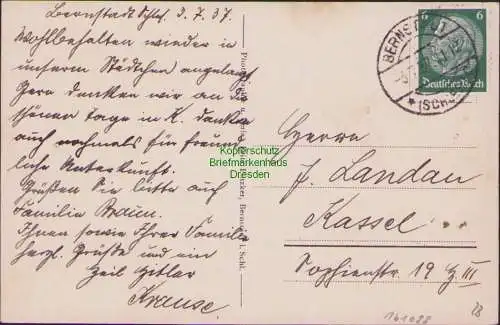 Bernstadt Schles. 3.7.37.
Wohlbehalten wieder in
unserm Städtchen angelangt
Gern denken wir an die
schönen Tage in K. danken
auch nochmals für freund-
liche Unterkunft.
Grüßen Sie bitte auch
Familie Braun.
Ihnen sowie Ihrer Familie
herzl. Grüße und ein
Heil Hitler
Krause.
Kopierschutz
Briefmarkenhaus
Dresden
6 6
Deutsches Reich
BERNSTADT
(SCHLES
Herrn
J. Landau
Kassel
Sophienstr. 19 III
161088